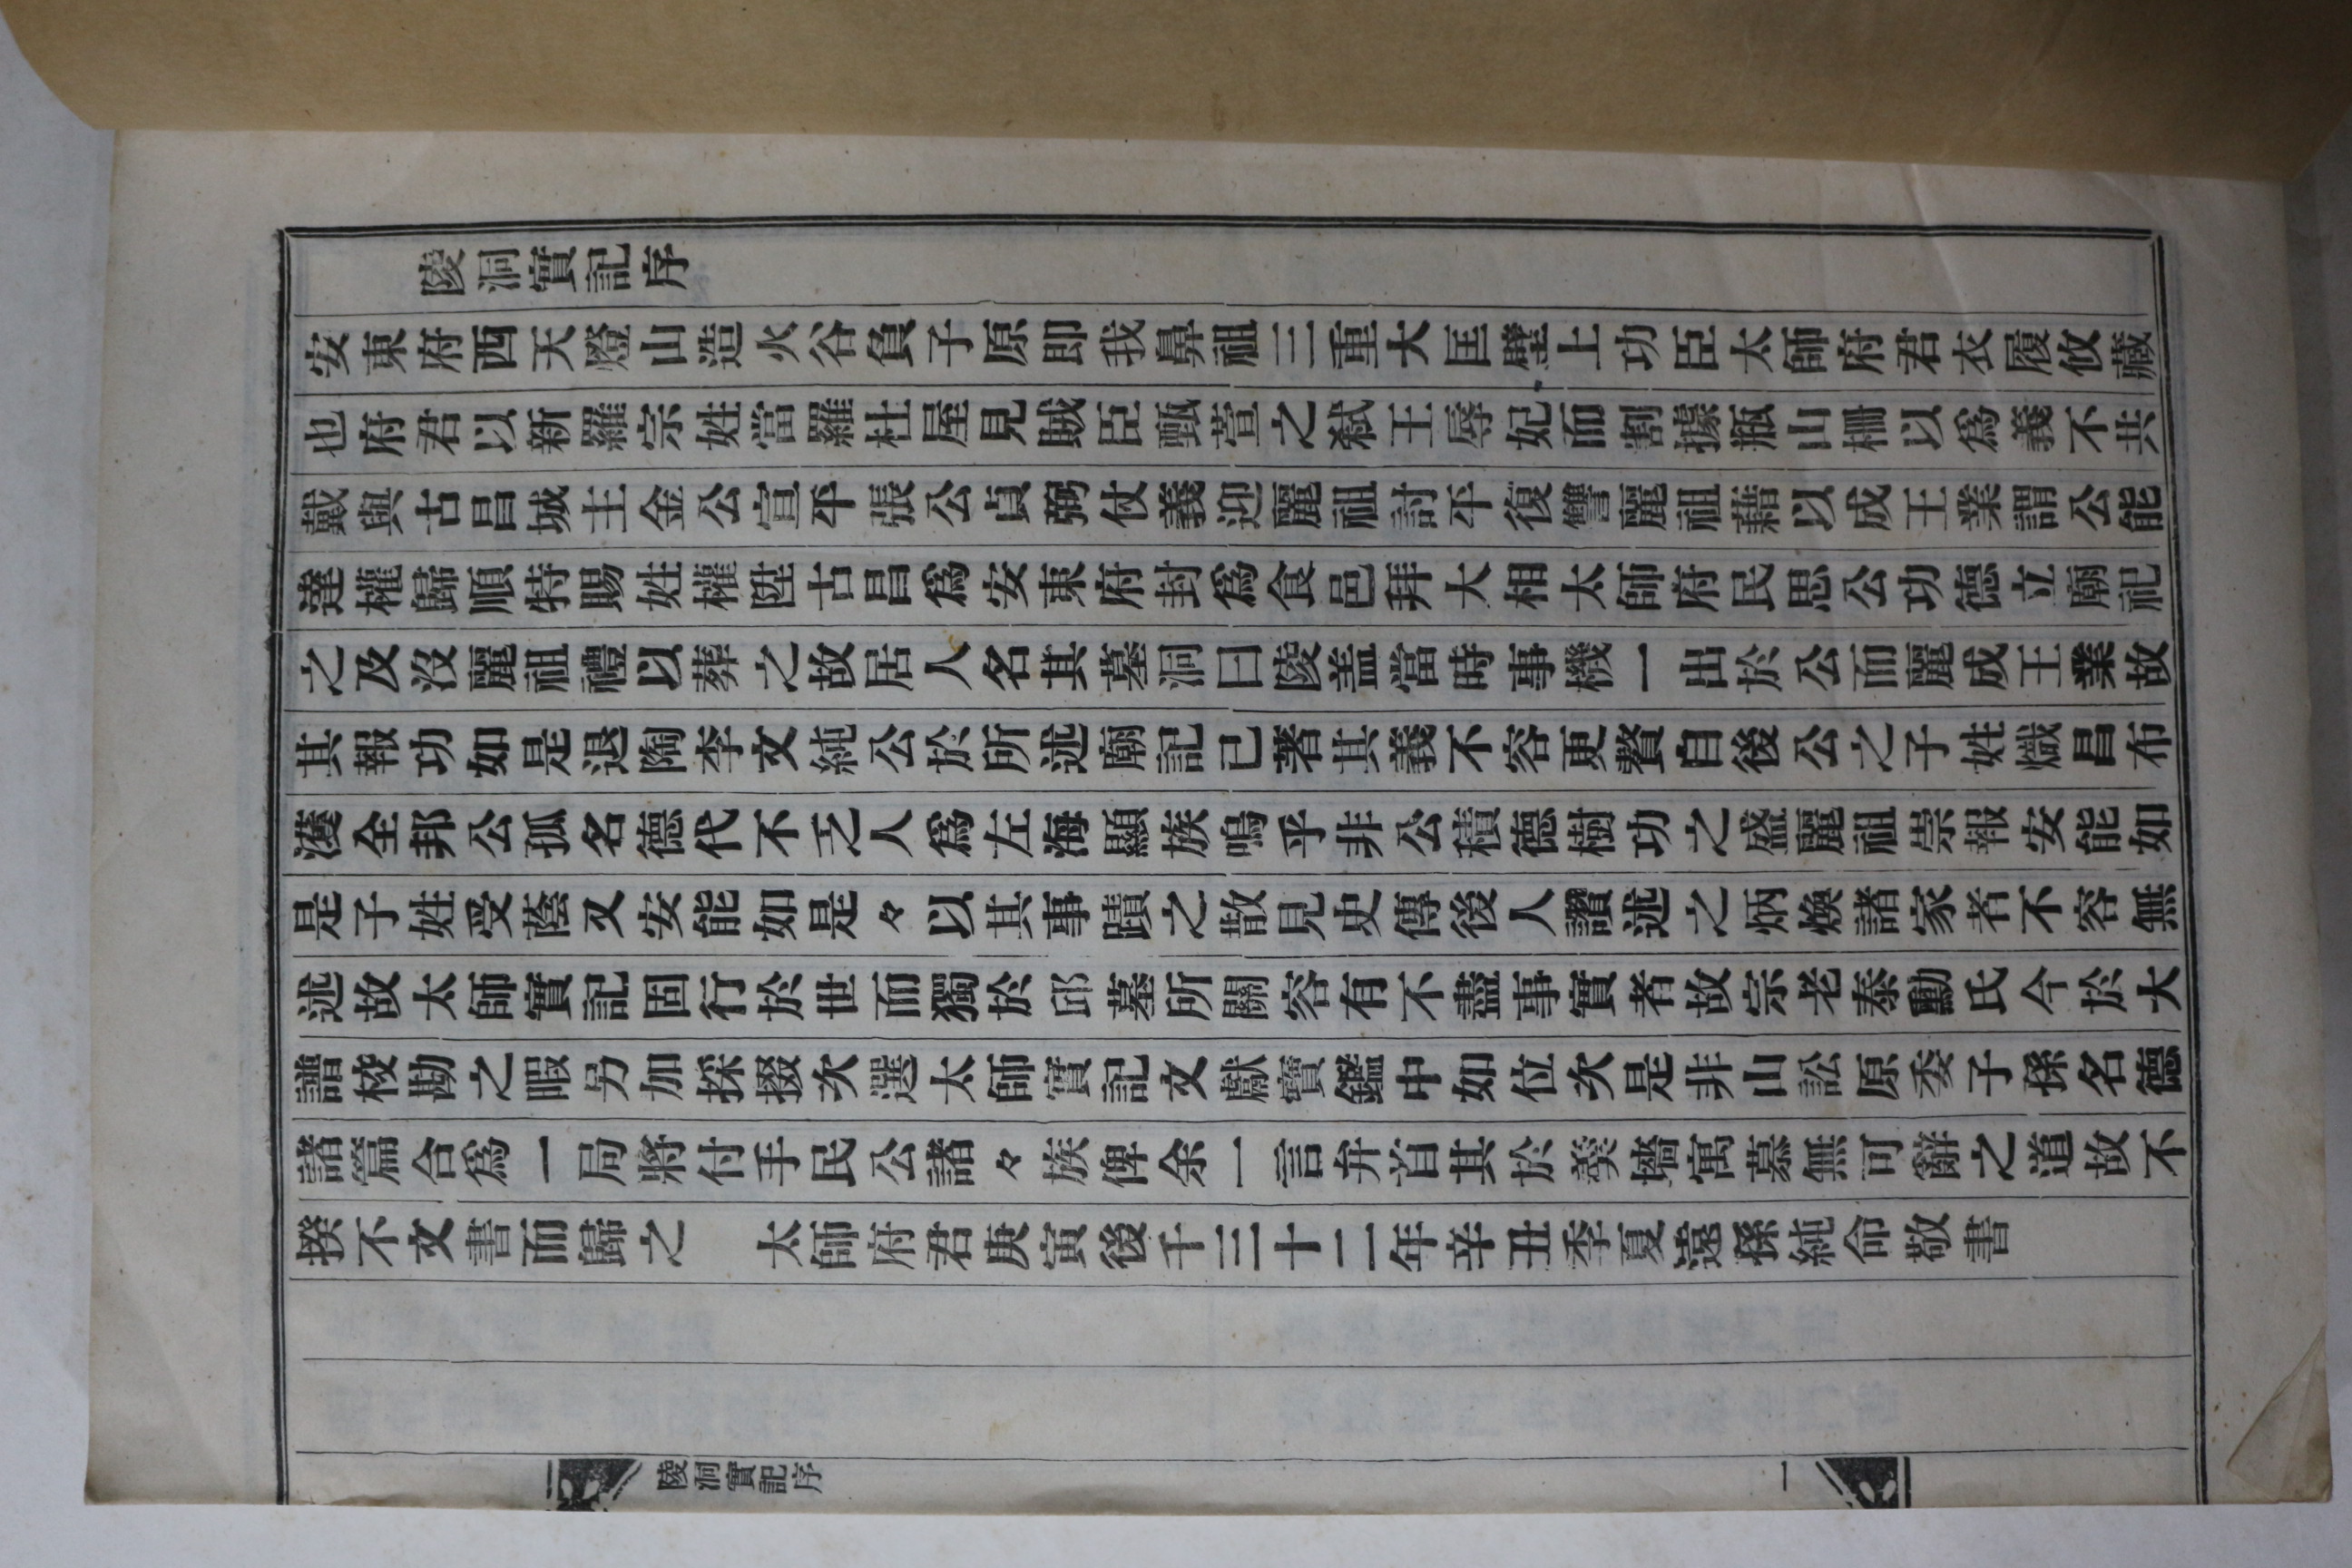 陵洞實記序
安東府西天燈山造火谷負子原即我鼻祖三重大匡壁上功臣太師府君衣履攸藏
也府君以新羅宗姓當羅社屋見賊臣甄萱之弑王辱妃而割據瓶山柵以爲義不共
戴與古昌城主金公宣平張公貞弼仗義迎麗祖討平復讐麗祖藉以成王業謂公能
達權歸順特賜姓權陞古昌爲安東府封爲食邑拜大相太師府民思公功德立廟祀
之及沒麗祖禮以葬之故居人名其墓洞曰陵盖當時事機一出於公而麗成王業故
其報功如是退陶李文純公於所述廟記已著其義不容更贅自後公之子姓熾昌布
濩全邦公孤名德代不乏人爲左海顯族嗚乎非公積德樹功之盛麗祖崇報安能如
是子姓受蔭又安能如是々以其事蹟之散見史傳後人讚述之炳煥諸家者不容無
述故太師實記固行於世而獨於邱墓所關容有不盡事實者故宗老泰勳氏今於大
譜校勘之暇另加採掇次選太師實記文獻寶鑑中如位次是非山訟原委子孫名德
諸篇合爲一局將付手民公諸々族俾余一言弁首其於羹墻寓慕無可辭之道故不
揆不文書而歸之　太師府君庚寅後千三十二年辛丑季夏遠孫純命敬書
陵洞實記序
一